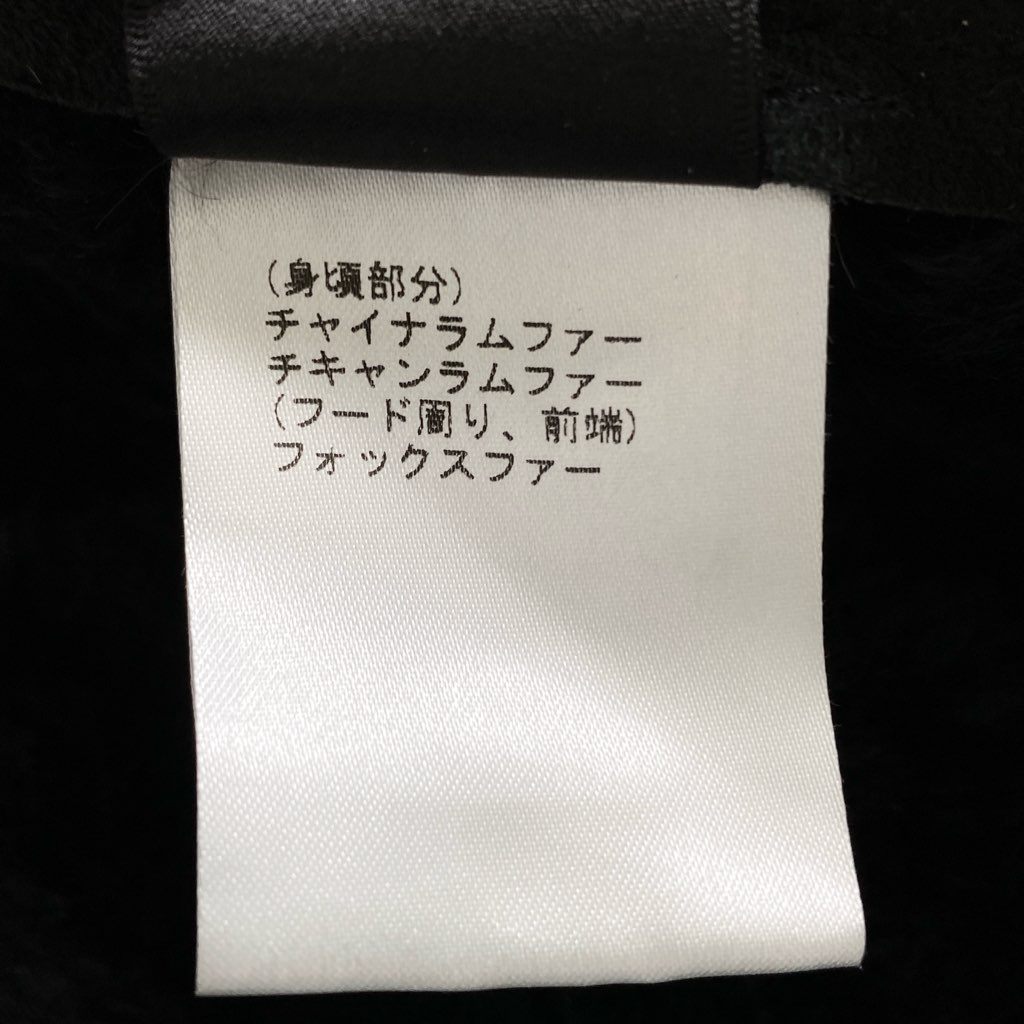 (身頃部分)
チャイナラムファー
チキャンラムファー
(フード周り、前端)
フォックスファー